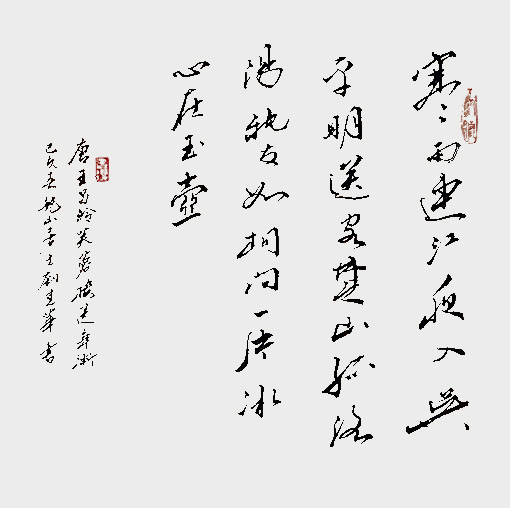 寒雨連江夜入吳
平明送客楚山孤洛
陽親友如相问一片冰
心在玉壺
唐王昌龄芙蓉楼送辛渐
己亥春山居士華书